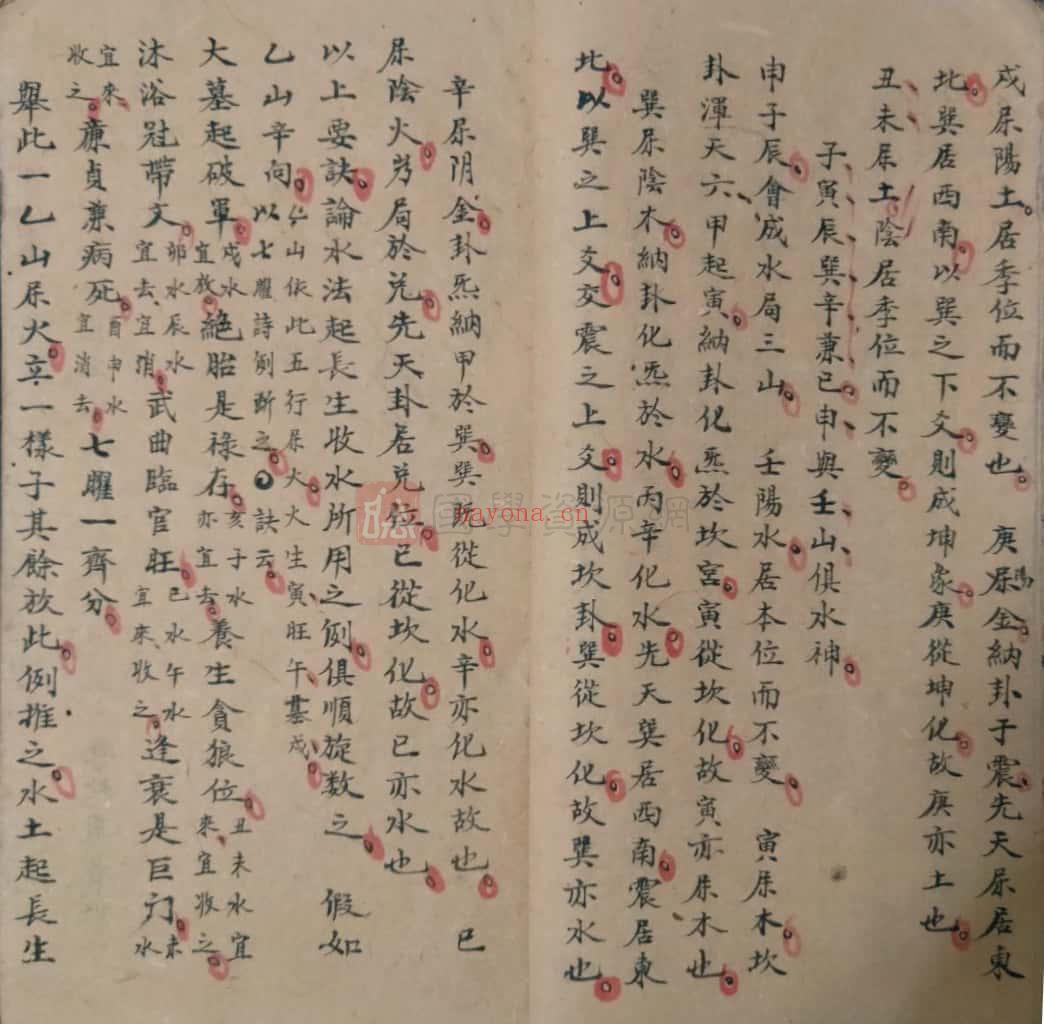 戍屬陽土居季位而不變也 庚屬金納卦于震先天屬居東
北巽居西南以巽之下爻則成坤象庚從坤化故庚亦土也
丑未屬土陰居季位而不變
子寅辰巽辛兼巳申與壬山俱水神
申子辰會成水局三山 壬陽水居本位而不變 寅屬木坎
卦渾天六甲起寅納卦化炁於坎宮寅從坎化故寅亦屬木也
巽屬陰木納卦化炁於水丙辛化水先天巽居西南震居東
北以巽之上爻交震之上爻則成坎卦巽從坎化故巽亦水也
辛屬阴金卦炁納甲於巽巽既從化水辛亦化水故也 巳
屬陰火為局於兌先天卦居兌位巳從坎化故巳亦水也
以上要訣論水法起長生收水所用之例俱順旋数之 假如
乙山辛向 乙山依此五行屬火火生寅旺午墓戍 以七曜詩例断之 訣云
大墓起破軍 戍水宜放 絕胎是禄存 亥子水亦宜去 養生貪狼位 丑未水宜來宜收之
沐浴冠帶文 卯水辰水宜去宜消 武曲臨官旺 巳水午水宜來收之 逢衰是巨门 未水
宜來收之 廉貞兼病死 酉申水宜消去 七曜一齊分
舉此一乙山屬火立一樣子其餘放此例推之水土起長生
國學資源網
nayona.cn